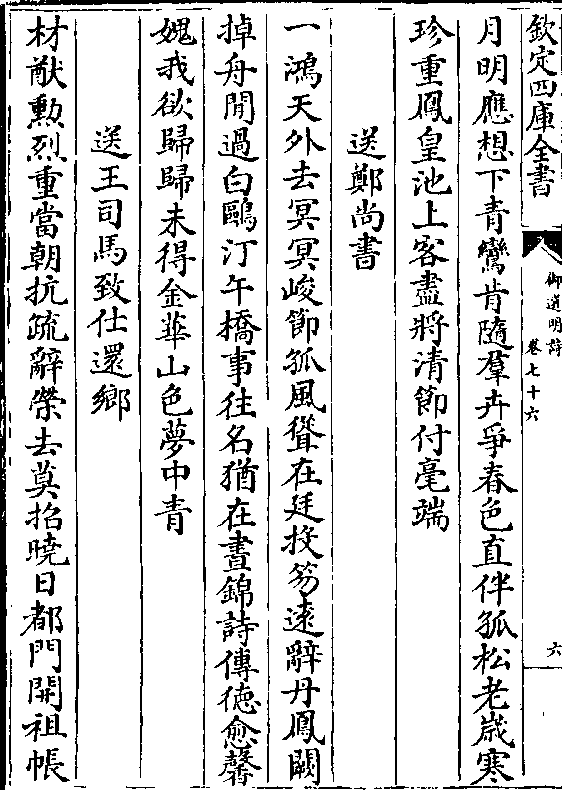 欽定四庫全書
御選明詩
卷七十六
六
月明應想下青鸞肯隨羣卉爭春色直伴孤松老歲寒
珍重鳳皇池上客盡將清節付毫端
送鄭尚書
一鴻天外去冥冥峻節孤風聳在廷投笏遠辭丹鳳闕
掉舟閒過白鷗汀午橋事往名猶在晝錦詩傳德愈馨
媿我欲歸歸未得金華山色夢中青
送王司馬致仕還鄉
材猷勲烈重當朝抗疏辭榮去莫招曉日都門開祖帳